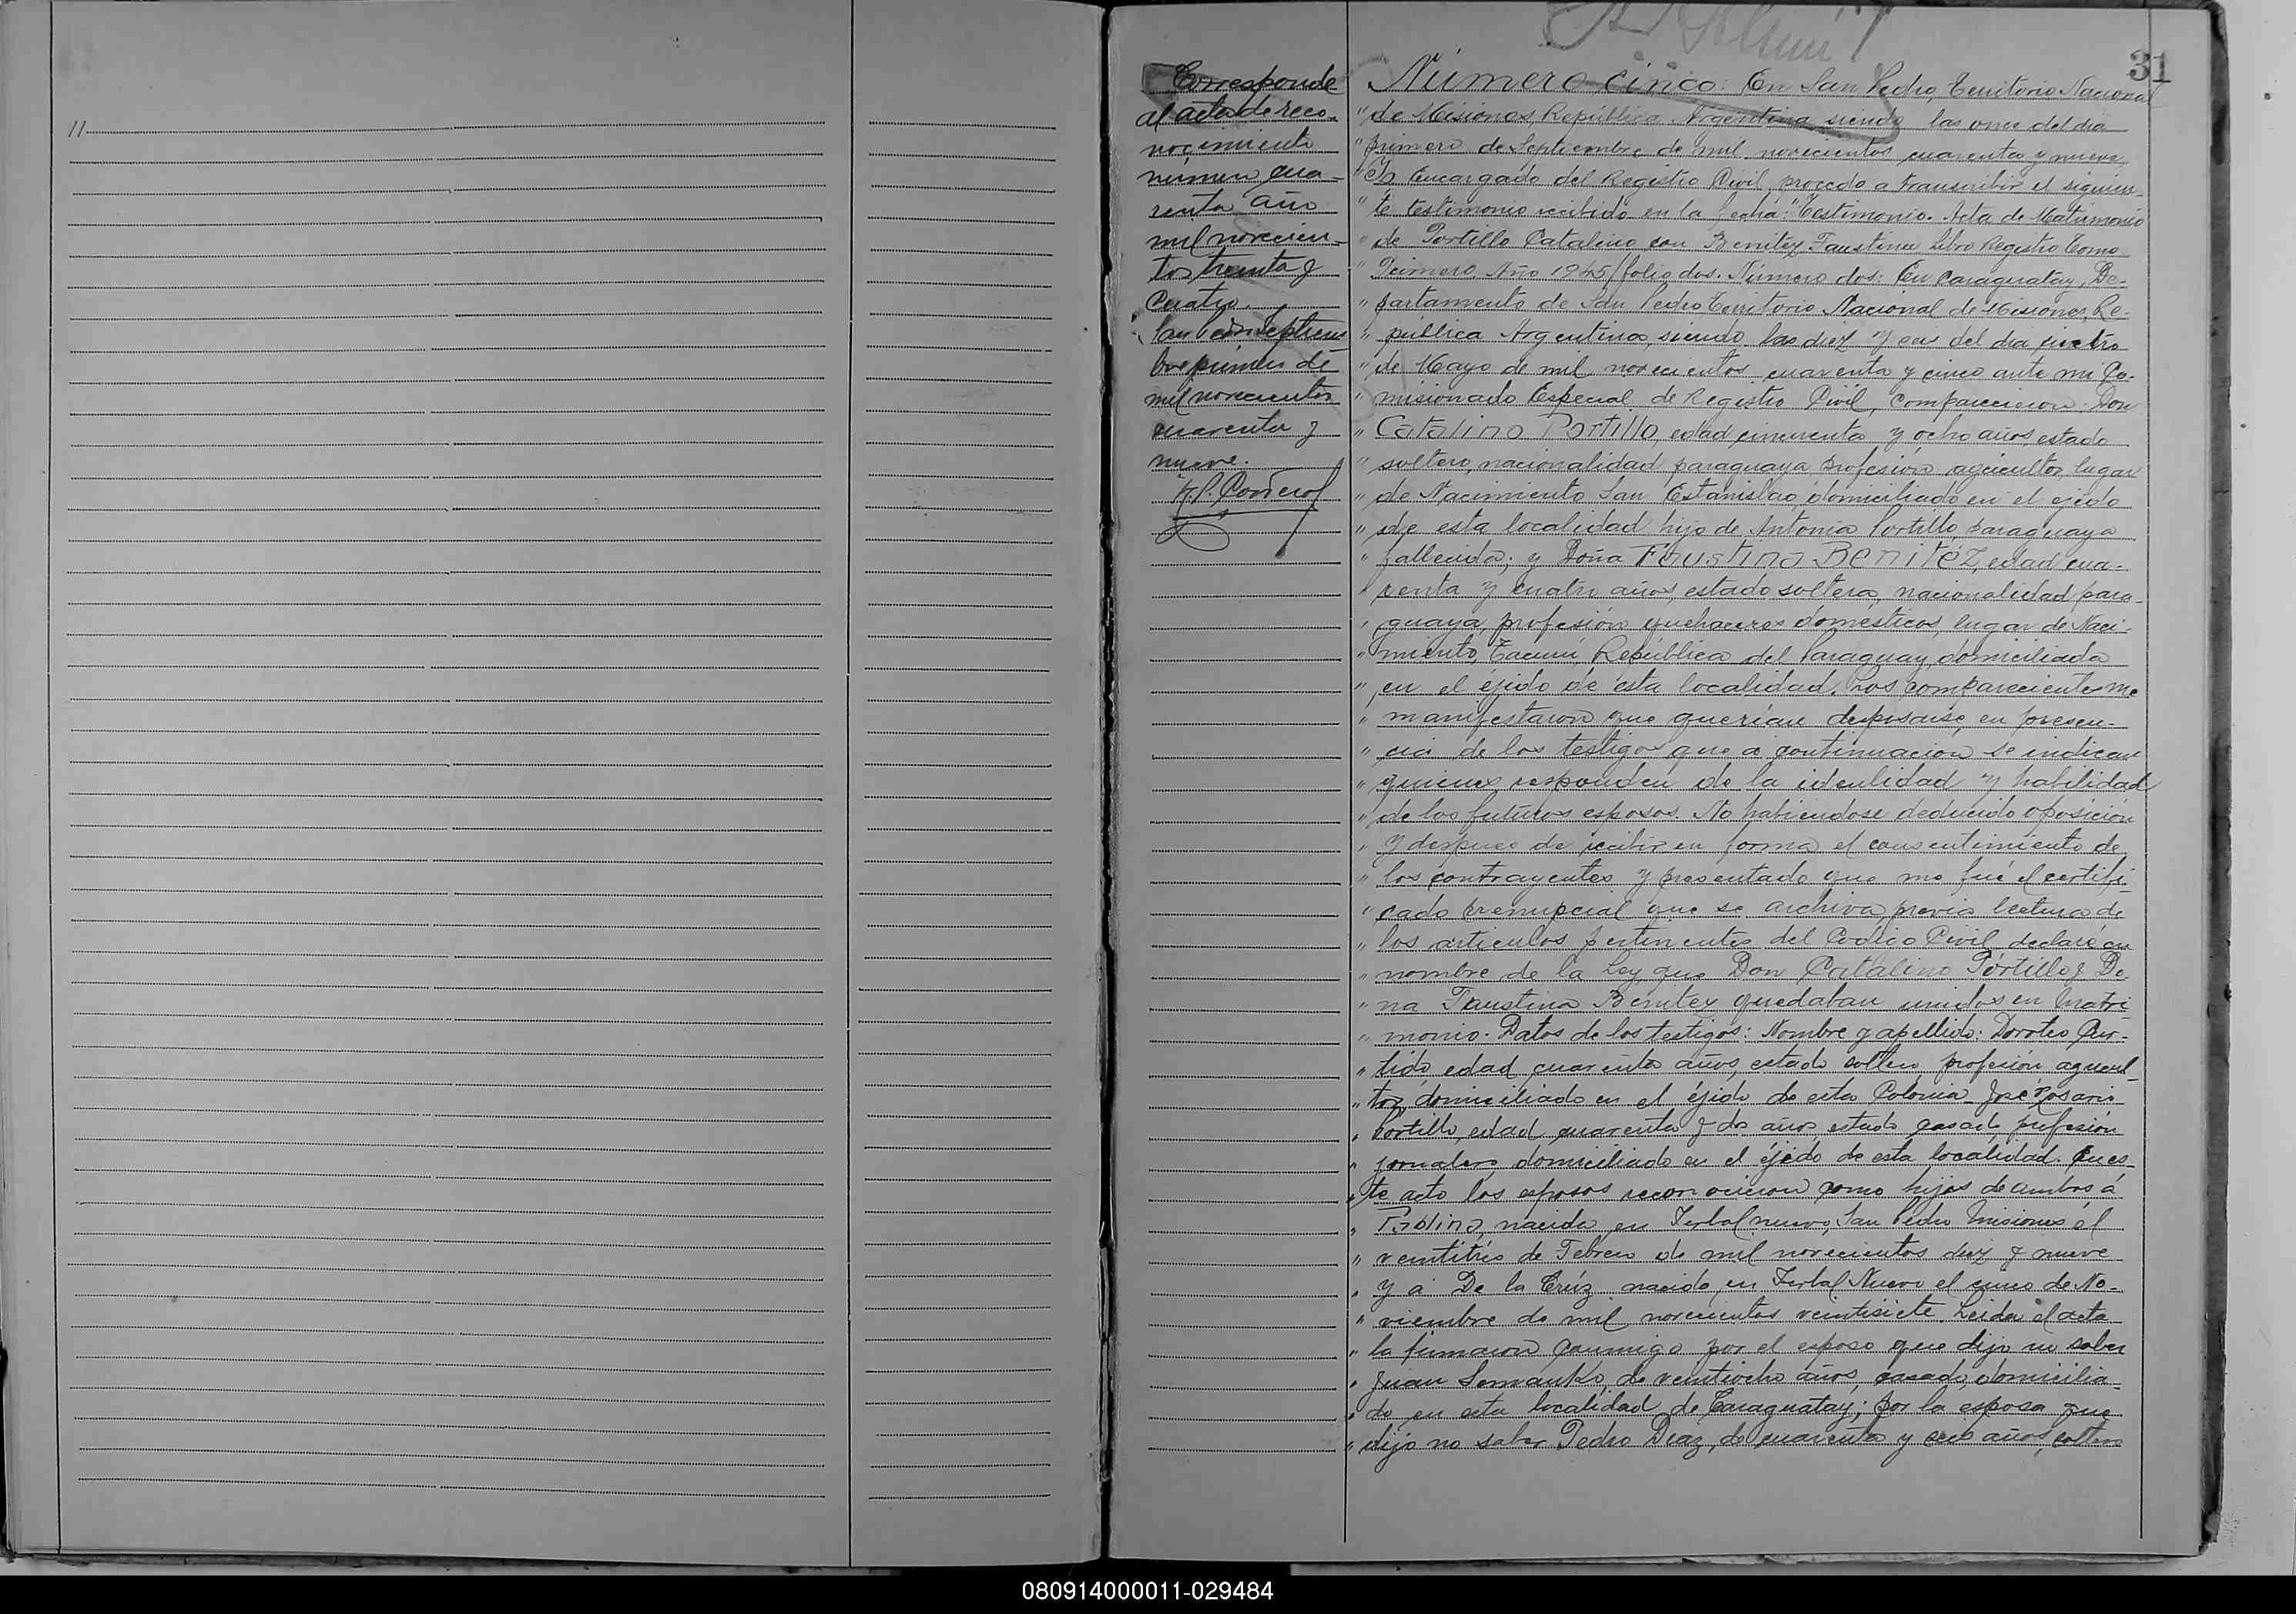 31
11
Corresponde
al acta de reco-
nocimiento
número cua-
renta año
mil novecien-
tos treinta y
cuatro.
San Pedro Septiem-
bre primero de
mil novecientos
cuarenta y
nueve.
Número cinco: En San Pedro, Territorio Nacional
" de Misiones, República Argentina siendo las once del día
" primero de Septiembre de mil novecientos cuarenta y nueve,
" Yo Encargado del Registro Civil, procedo a transcribir el siguien-
" te testimonio recibido en la fecha: "Testimonio. Acta de Matrimonio
" de Portillo Catalino con Benitez Faustina Libro Registro Tomo
" Primero Año 1945/folio dos. Número dos: En Caraguatay, De-
" partamento de San Pedro Territorio Nacional de Misiones, Re-
" pública Argentina, siendo las diez y seis del día cuatro
" de Mayo de mil novecientos cuarenta y cinco ante mi Co-
" misionado Especial de Registro Civil, comparecieron: Don
" Catalino Portillo, edad cincuenta y ocho años, estado
" soltero, nacionalidad paraguaya, profesión agricultor, lugar
" de Nacimiento San Estanislao, domiciliado en el ejido
" de esta localidad hijo de Antonia Portillo, paraguaya
" fallecida; y Doña Faustina Benitez, edad cua-
" renta y cuatro años, estado soltera, nacionalidad para-
" guaya, profesión quehaceres domésticos, lugar de Naci-
" miento, República del Paraguay, domiciliada
" en el ejido de esta localidad. Los comparecientes me
" manifestaron que querían desposarse, en presen-
" cia de los testigos que a continuacion se indican
" quienes responden de la identidad y habilidad
" de los futuros esposos. No habiendose deducido oposición
" y después de recibir en forma el consentimiento de
" los contrayentes y presentado que me fué el certifi-
" cado prenupcial que se archiva, previa lectura de
" los articulos pertinentes del Codigo Civil declaré en
" nombre de la Ley que Don Catalino Portillo y Do-
" na Faustina Benitez quedaban unidos en matri-
" monio. Datos de los testigos: Nombre y apellido: Doroteo Cur-
" tido, edad cuarenta años, estado soltero profesión agricul-
" tor, domiciliado en el éjido de esta Colonia. José Rosario
" Portillo, edad cuarenta y dos años, estado casado, profesión
" jornalero domiciliado en el éjido de esta localidad. En es-
" te acto los esposos reconocieron como hijos de ambos á
" nacida en Yerbal nuevo, San Pedro Misiones el
" veintitrés de Febrero de mil novecientos diez y nueve
" y á De la Crúz nacido en Yerbal Nuevo el cinco de No-
" viembre de mil novecientos veintisiete. Leida el acta
" la firmaron conmigo por el esposo que dijo no saber
" Juan Semanko, de veintiocho años, casado, domicilia-
" do en esta localidad de Caraguatay; por la esposa que
" dijo no saber Pedro Diaz, de cuarenta y años, soltero
080914000011-029484